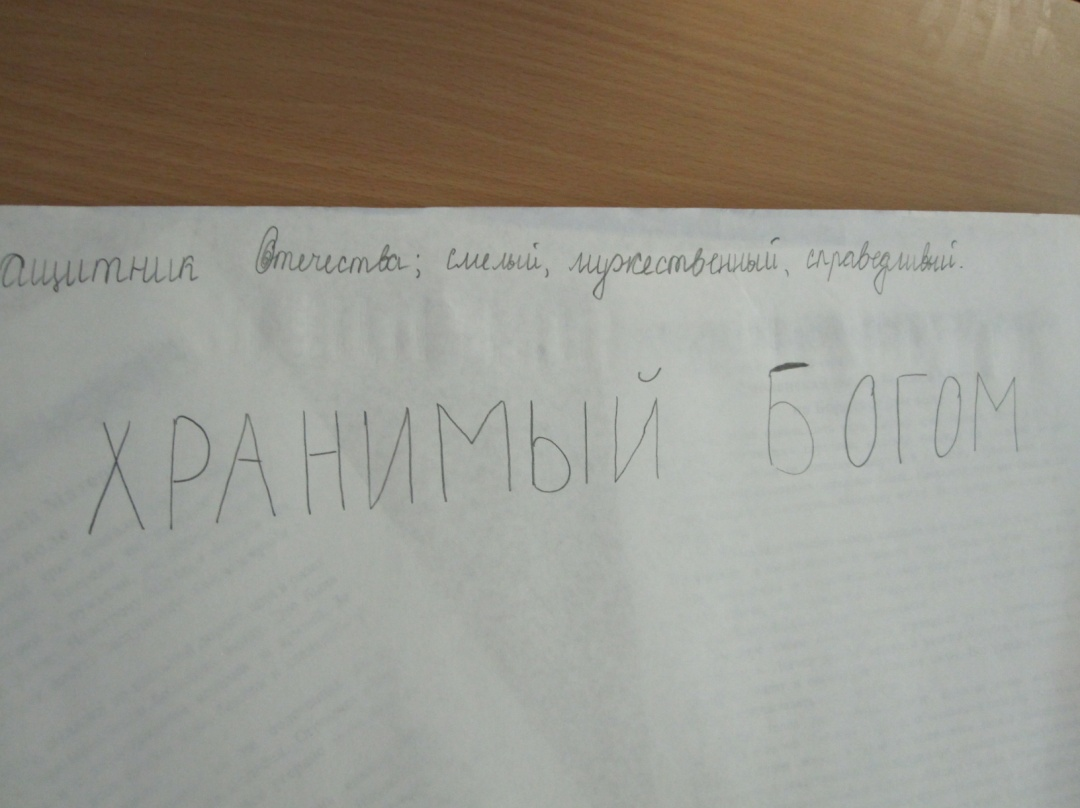 ащитник Отечества; смелый, мужественный, справедливый.
ХРАНИМЫЙ БОГОМ